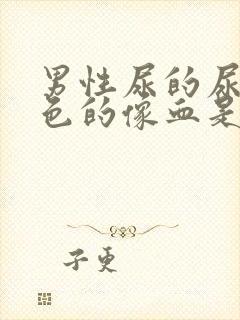 男性尿的尿
色的像血是
子更